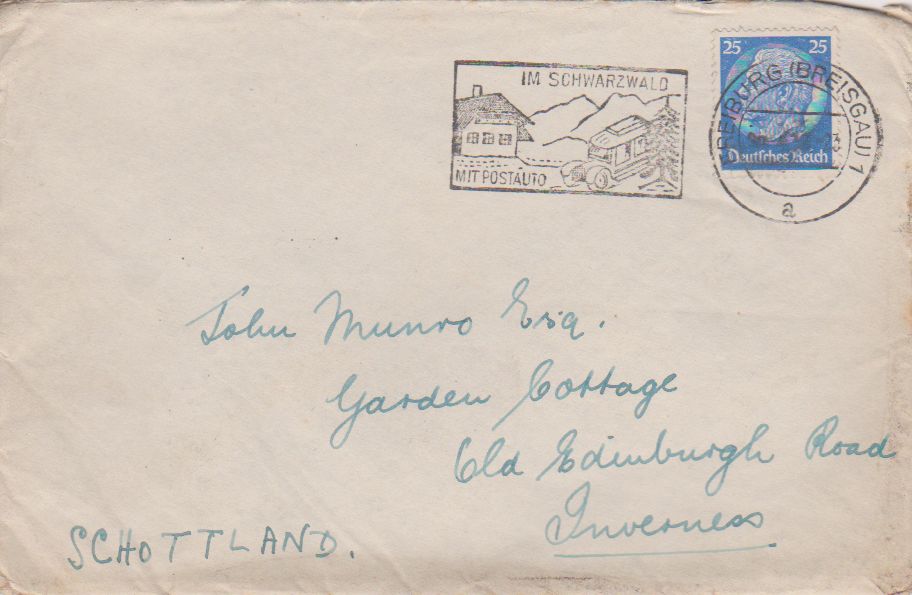 25 25
Deutsches Reich
FREIBURG (BREISGAU) 1
a
IM SCHWARZWALD
MIT POSTAUTO
John Munro Esq.
Garden Cottage
Old Edinburgh Road
Inverness
SCHOTTLAND.